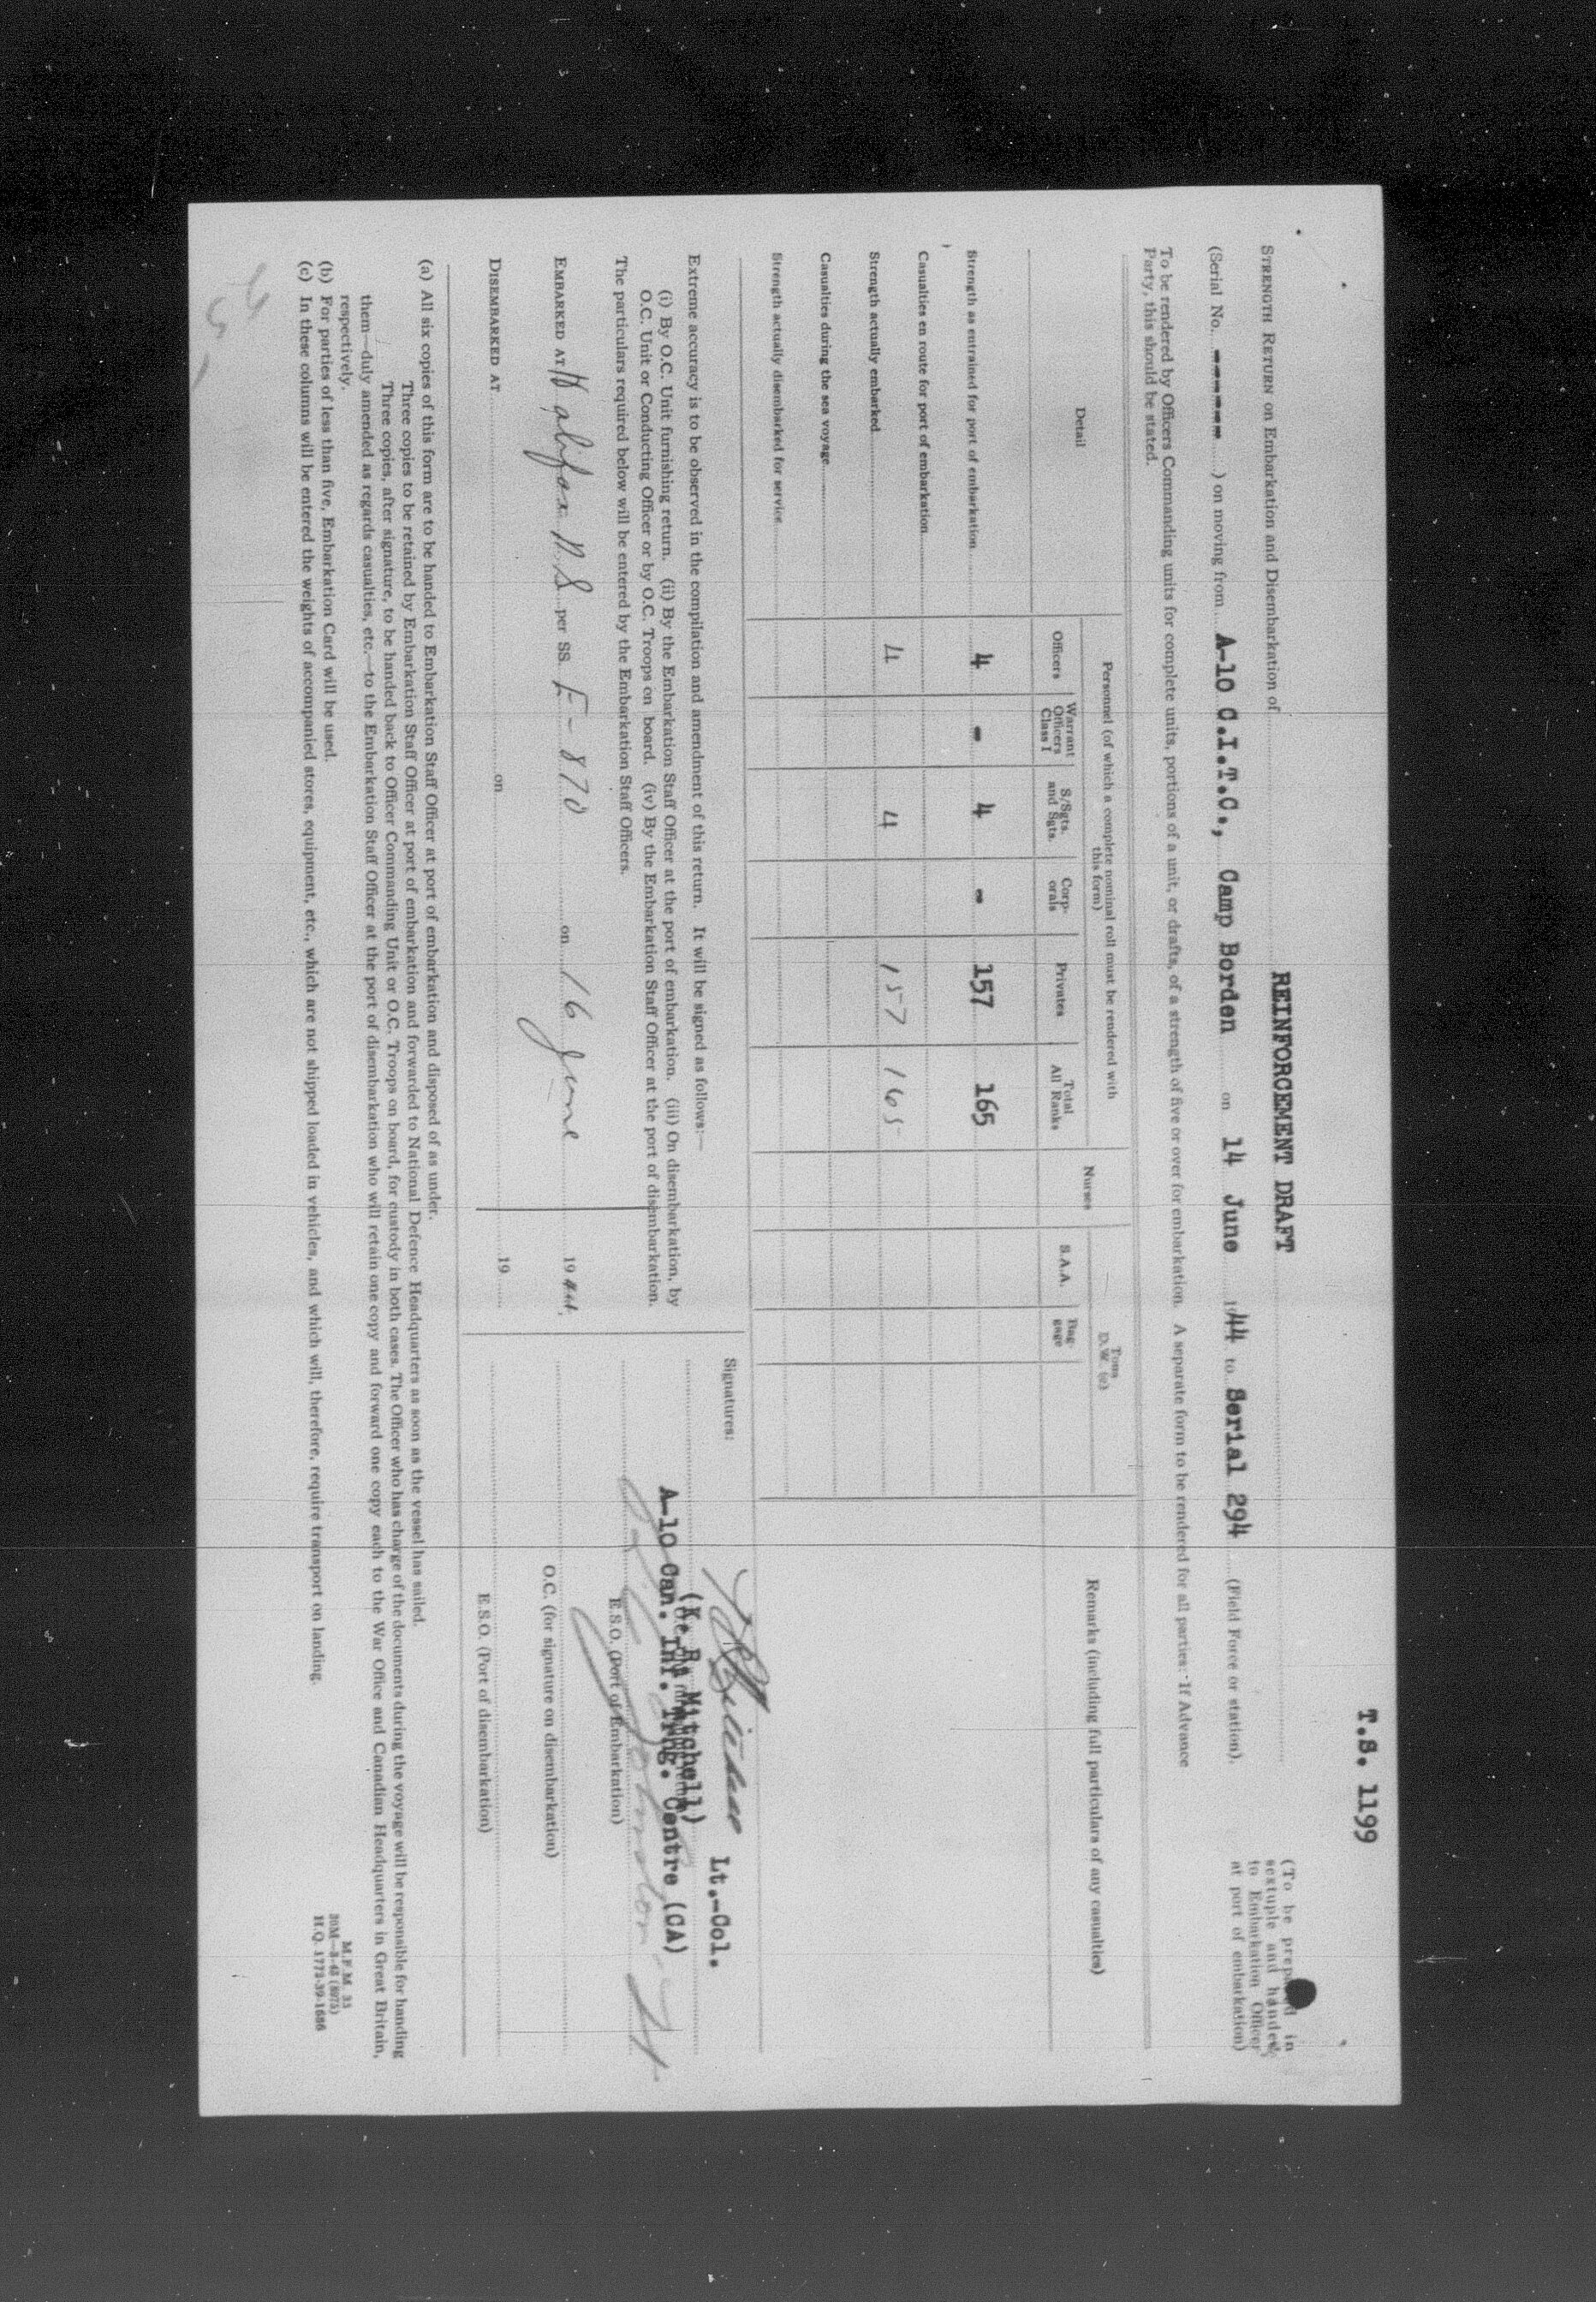 T.S. 1199
(To be prepared in
sextuple and handed
to Embarkation Officer
at port of embarkation)
STRENGTH RETURN on Embarkation and Disembarkation of REINFORCEMENT DRAFT
(Serial No. ------ ) on moving from A-10 C.I.T.C., Camp Borden on 14 June 1944 to Serial 294 (Field Force or station).
To be rendered by Officers Commanding units for complete units, portions of a unit, or drafts, of a strength of five or over for embarkation. A separate form to be rendered for all parties. If Advance
Party, this should be stated.
Detail
Personnel (of which a complete nominal roll must be rendered with
this form)
Officers
Warrant
Officers
Class I
S/Sgts.
and Sgts.
Corp-
orals
Privates
Total
All Ranks
Nurses
Tons
D.W. (c)
S.A.A.
Bag-
gage
Remarks (including full particulars of any casualties)
Strength as entrained for port of embarkation 4 - 4 - 157 165
Casualties en route for port of embarkation
Strength actually embarked 4 4 157 165
Casualties during the sea voyage
Strength actually disembarked for service
Extreme accuracy is to be observed in the compilation and amendment of this return. It will be signed as follows:—
(i) By O.C. Unit furnishing return. (ii) By the Embarkation Staff Officer at the port of embarkation. (iii) On disembarkation, by
O.C. Unit or Conducting Officer or by O.C. Troops on board. (iv) By the Embarkation Staff Officer at the port of disembarkation.
The particulars required below will be entered by the Embarkation Staff Officers.
EMBARKED AT Halifax N.S. per SS. E-870 on 16 June 1944
DISEMBARKED AT on 19
Signatures:
Lt.-Col.
(K. R. Mitchell)
A-10 Can. Inf. Trng. Centre (CA)
E.S.O. (Port of Embarkation)
O.C. (for signature on disembarkation)
E.S.O. (Port of disembarkation)
(a) All six copies of this form are to be handed to Embarkation Staff Officer at port of embarkation and disposed of as under.
Three copies to be retained by Embarkation Staff Officer at port of embarkation and forwarded to National Defence Headquarters as soon as the vessel has sailed.
Three copies, after signature, to be handed back to Officer Commanding Unit or O.C. Troops on board, for custody in both cases. The Officer who has charge of the documents during the voyage will be responsible for handing
them—duly amended as regards casualties, etc.—to the Embarkation Staff Officer at the port of disembarkation who will retain one copy and forward one copy each to the War Office and Canadian Headquarters in Great Britain,
respectively.
(b) For parties of less than five, Embarkation Card will be used.
(c) In these columns will be entered the weights of accompanied stores, equipment, etc., which are not shipped loaded in vehicles, and which will, therefore, require transport on landing.
M.F.M. 35
H.Q. 1772-39-1686